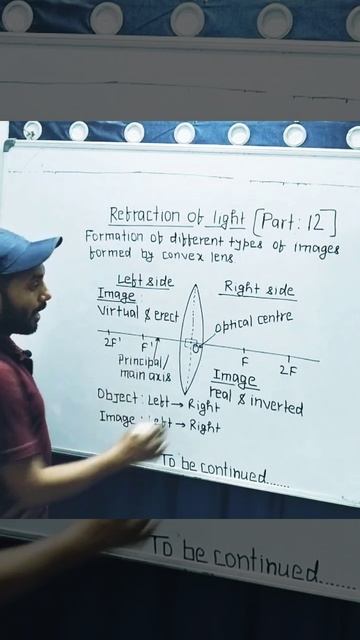 Refraction of light [Part: 12]
Formation of different types of images
formed by convex lens
Left side
Image:
Virtual & erect
Right side
Optical centre
2F' F' F 2F
Principal/
main axis
Image
real & inverted
Object: Left → Right
Image: Left → Right
To be continued......
To be continued.......